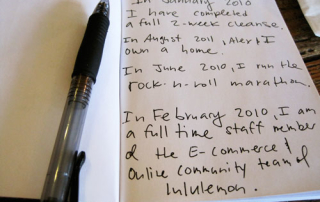 In January 2010
I have completed
a full 2-week cleanse.
In August 2011, Alex & I
own a home.
In June 2010, I run the
rock-n-roll marathon.
In February 2010, I am
a full time staff member
of the E-commerce &
Online community team of
lululemon.